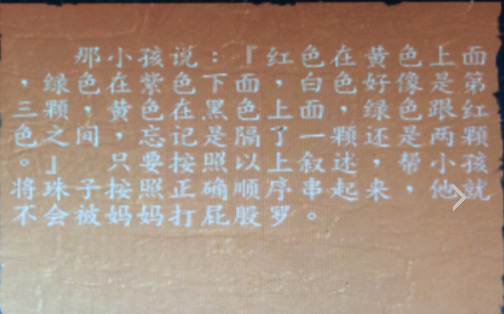 那小孩说：『红色在黄色上面
，绿色在紫色下面，白色好像是第
三颗，黄色在黑色上面，绿色跟红
色之间，忘记是隔了一颗还是两颗
。』　只要按照以上叙述，帮小孩
将珠子按照正确顺序串起来，他就
不会被妈妈打屁股罗。